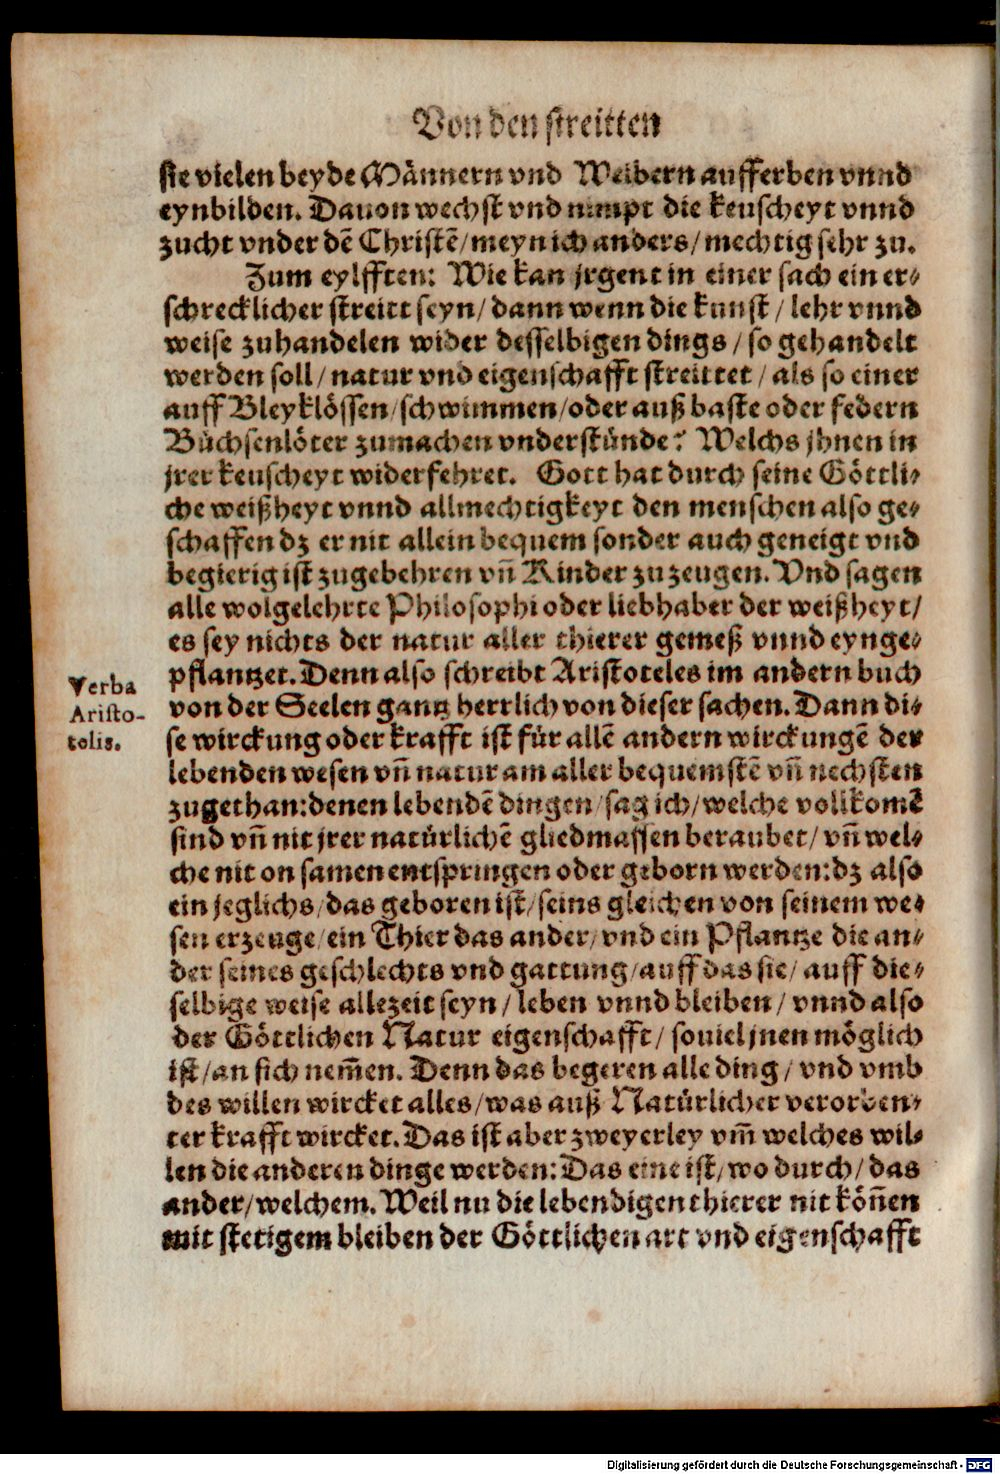 Von den streitten
sie vielen beyde Männern vnd Weibern aufferben vnnd
eynbilden. Dauon wechst vnd nimpt die keuscheyt vnnd
zucht vnder dē Christē/ meyn ich anders/ mechtig sehr zu.
Zum eylfften: Wie kan jrgent in einer sach ein er-
schrecklicher streitt seyn/ dann wenn die kunst/ lehr vnnd
weise zuhandelen wider desselbigen dings/ so gehandelt
werden soll/ natur vnd eigenschafft streittet/ als so einer
auff Bleyklössen/ schwimmen/ oder auß baste oder federn
Büchsenlöter zumachen vnderstünde? Welchs jhnen in
jrer keuscheyt widerfehret. Gott hat durch seine Göttli-
che weißheyt vnnd allmechtigkeyt den menschen also ge-
schaffen dz er nit allein bequem sonder auch geneigt vnd
begierig ist zugebehren vñ Kinder zuzeugen. Vnd sagen
alle wolgelehrte Philosophi oder liebhaber der weißheyt/
es sey nichts der natur aller thierer gemeß vnnd eynge-
pflantzet. Denn also schreibt Aristoteles im andern buch
von der Seelen gantz herrlich von dieser sachen. Dann di-
se wirckung oder krafft ist für allē andern wirckungē der
lebenden wesen vñ natur am aller bequemstē vñ nechsten
zugethan: denen lebendē dingen/ sag ich/ welche vollkomē
sind vñ nit jrer natürlichē gliedmassen beraubet/ vñ wel-
che nit on samen entspringen oder geborn werden: dz also
ein jeglichs/ das geboren ist/ seins gleichen von seinem we-
sen erzeuge/ ein Thier das ander/ vnd ein Pflantze die an-
der seines geschlechts vnd gattung/ auff das sie/ auff die-
selbige weise allezeit seyn/ leben vnnd bleiben/ vnnd also
der Göttlichen Natur eigenschafft/ souiel jnen möglich
ist/ an sich nem̄en. Denn das begeren alle ding/ vnd vmb
des willen wircket alles/ was auß Natürlicher verorden-
ter krafft wircket. Das ist aber zweyerley vm̄ welches wil-
len die anderen dinge werden: Das eine ist/ wo durch/ das
ander/ welchem. Weil nu die lebendigen thierer nit köñen
mit stetigem bleiben der Göttlichen art vnd eigenschafft
Verba
Aristo-
telis.
Digitalisierung gefördert durch die Deutsche Forschungsgemeinschaft - DFG